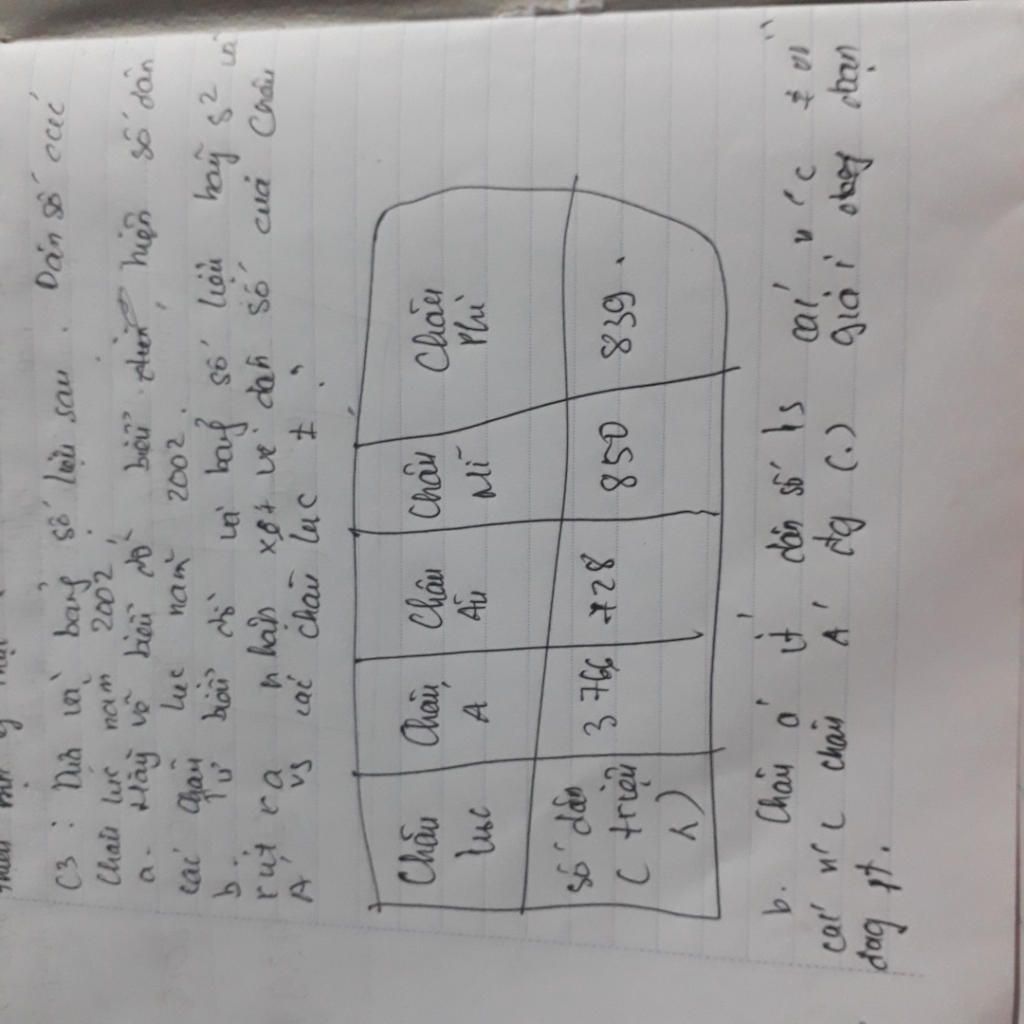 C3: Dựa vào bảng số liệu sau. Dân số các
Châu lục năm 2002
a. Hãy vẽ biểu đồ biểu hiện số dân
các châu lục năm 2002.
b. Từ biểu đồ và bảng số liệu hãy s2 và
rút ra nhân xét về dân số của Châu
Á vs các châu lục ≠.
Châu lục
Châu Á
Châu Âu
Châu Mĩ
Châu Phi
số dân (triệu
3 766
728
850
839.
b. Châu á ít dân số hs các nc ≠ vì
các nc châu Á đg (.) giai đoạn
đag pt.